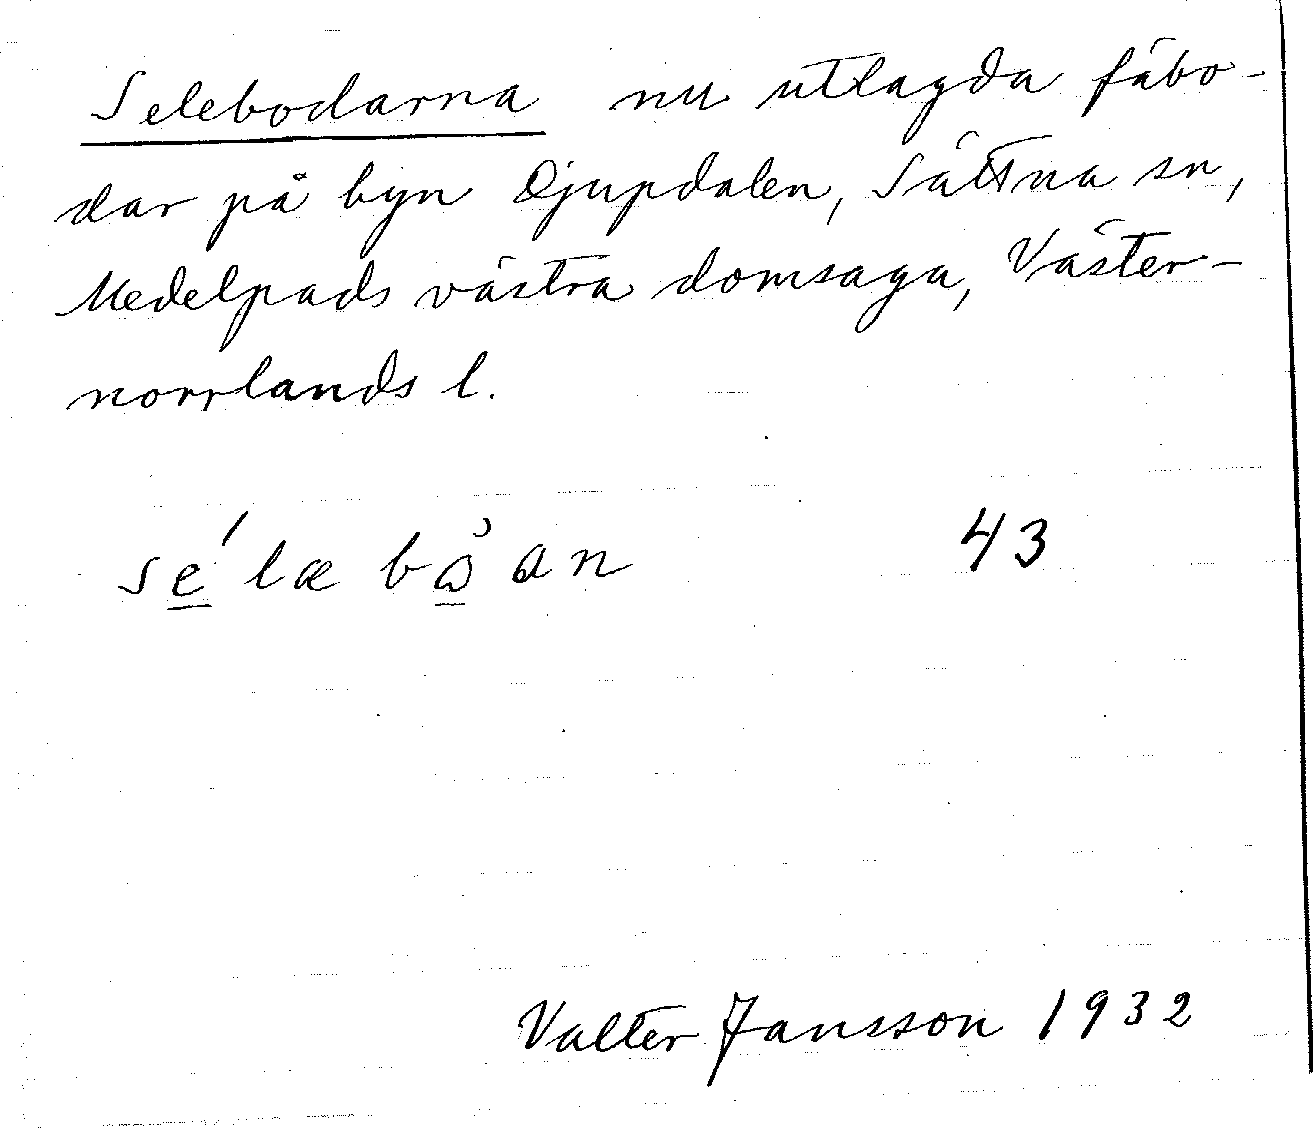 Selebodarna nu utlagda fäbo-
dar på byn Djupdalen, Sättna sn,
Medelpads västra domsaga, Väster-
norrlands l.
sé̲læbỏ̲an 43
Valter Jansson 1932